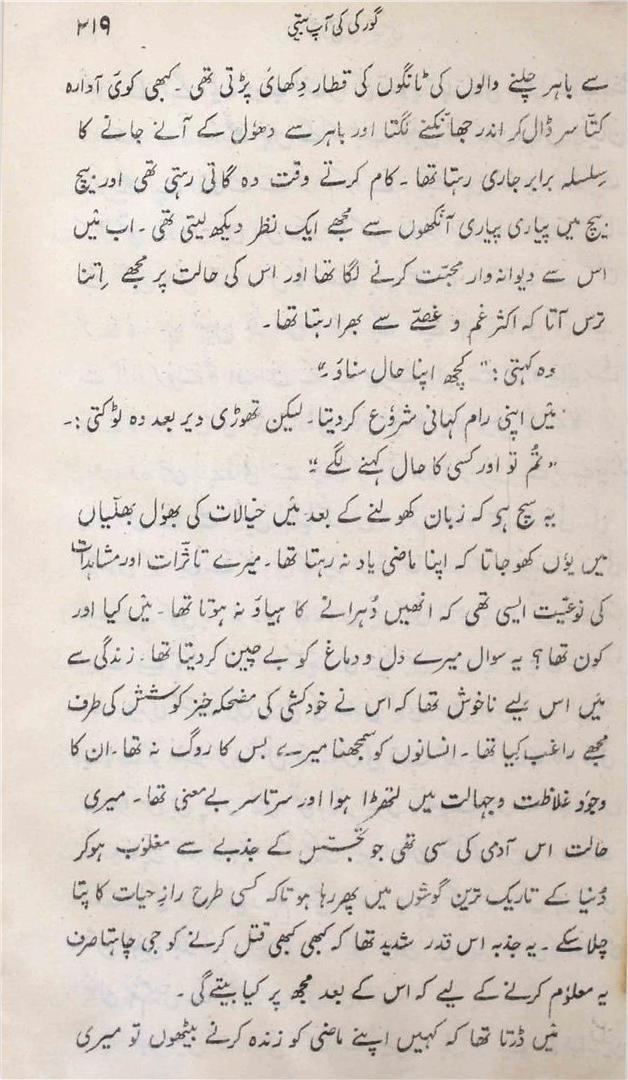 گورکی کی آپ بیتی ۳۱۹
سے باہر چلنے والوں کی ٹانگوں کی قطار دِکھائ پڑتی تھی ۔ کبھی کوئ آوارہ
کتّا سر ڈال کر اندر جھانکنے لگتا اور باہر سے دھوٗل کے آنے جانے کا
سِلسلہ برابر جاری رہتا تھا ۔ کام کرتے وقت وہ گاتی رہتی تھی اور بیچ
بیچ میں پیاری پیاری آنکھوں سے مُجھے ایک نظر دیکھ لیتی تھی ۔ اب مَیں
اس سے دیوانہ وار محبّت کرنے لگا تھا اور اس کی حالت پر مجھے اِتنا
ترس آتا کہ اکثر غم و غصّے سے بھرا رہتا تھا ۔
وہ کہتی :" کچھ اپنا حال سناؤ ۔"
مَیں اپنی رام کہانی شروٗع کردیتا ۔ لیکن تھوڑی دیر بعد وہ ٹوکتی :۔
" تُم تو اور کسی کا حال کہنے لگے ۔"
یہ سچ ہو کہ زبان کھولنے کے بعد مَیں خیالات کی بھوٗل بھلیّاں
میں یوٗں کھو جاتا کہ اپنا ماضی یاد نہ رہتا تھا ۔ میرے تاثّرات اور مشاہدات
کی نوعیّت ایسی تھی کہ انھیں دُہرانے کا ہیاؤ نہ ہوتا تھا ۔ مَیں کیا اور
کون تھا ؟ یہ سوال میرے دل و دماغ کو بے چین کردیتا تھا ۔ زندگی سے
مَیں اس لیے ناخوش تھا کہ اس نے خودکشی کی مضحکہ خیز کوشش کی طرف
مجھے راغب کِیا تھا ۔ انسانوں کو سمجھنا میرے بس کا روگ نہ تھا ۔ ان کا
وجوٗد غلاظت و جہالت میں لتھڑا ہوا اور سرتاسر بے معنی تھا ۔ میری
حالت اس آدمی کی سی تھی جو تجسّس کے جذبے سے مغلوٗب ہوکر
دُنیا کے تاریک ترین گوشوں میں پھر رہا ہو تاکہ کسی طرح رازِ حیات کا پتا
چلا سکے ۔ یہ جذبہ اس قدر شدید تھا کہ کبھی کبھی قتل کرنے کو جی چاہتا صرف
یہ معلوٗم کرنے کے لیے کہ اس کے بعد مجھ پر کیا بیتے گی ۔
مَیں ڈرتا تھا کہ کہیں اپنے ماضی کو زندہ کرنے بیٹھوں تو میری